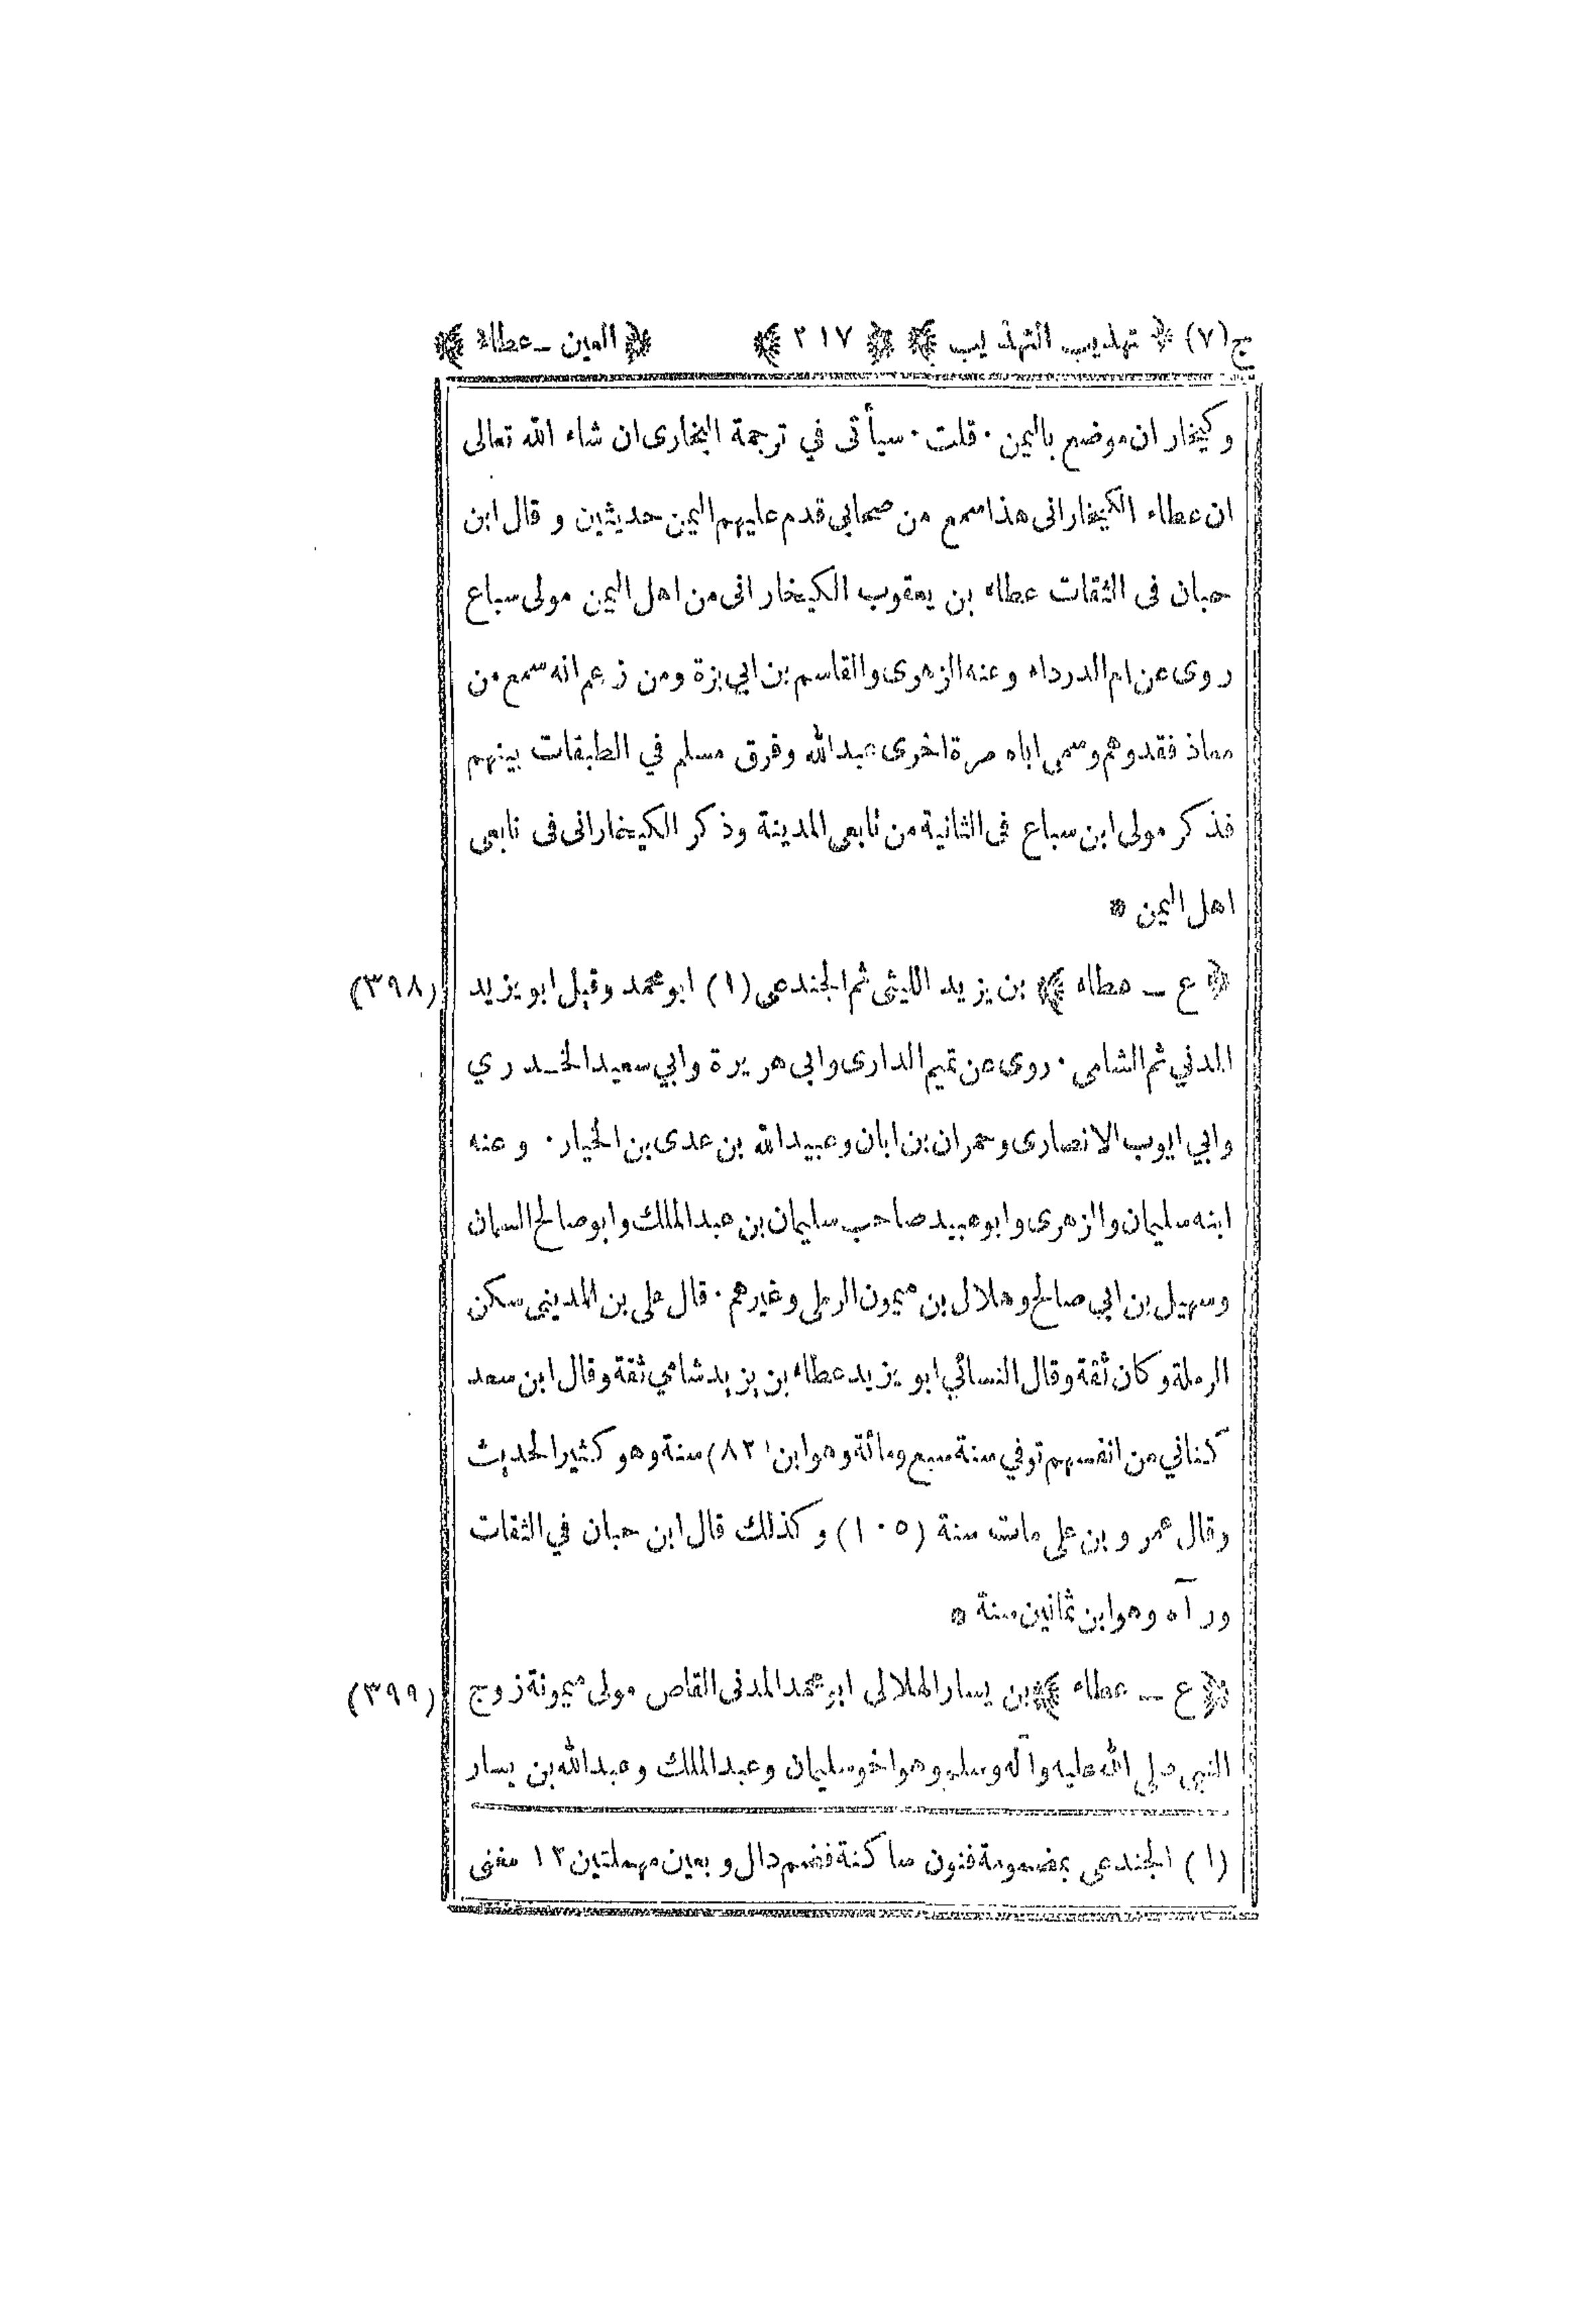 ج(٧) ﴿ تهذيب التهذيب ﴾ ﴿ ٢١٧ ﴾ ﴿ العين ـ عطاء ﴾
وكيخاران موضع باليمن ٠ قلت ٠ سيأتى في ترجمة البخارى ان شاء الله تعالى
ان عطاء الكيخارانى هذا سمع من صحابى قدم عليهم اليمن حديثين و قال ابن
حبان فى الثقات عطاء بن يعقوب الكيخارانى من اهل اليمن مولى سباع
روى عن ام الدرداء وعنه الزهرى والقاسم بن ابي بزة ومن زعم انه سمع من
معاذ فقد وهم وسمى اباه مرة اخرى عبد الله وفرق مسلم في الطبقات بينهم
فذكر مولى ابن سباع فى الثانية من تابعى المدينة وذكر الكيخارانى فى تابعى
اهل اليمن *
﴿ ع ـ عطاء ﴾ بن يزيد الليثى ثم الجندعى (١) ابو محمد وقيل ابو يزيد (٣٩٨)
المدني ثم الشامى ٠ روى عن تميم الدارى وابى هريرة وابي سعيد الخدري
وابي ايوب الانصارى وحمران بن ابان وعبيد الله بن عدى بن الخيار ٠ وعنه
ابنه سليمان والزهرى وابو عبيد صاحب سليمان بن عبد الملك وابو صالح السمان
وسهيل بن ابي صالح وهلال بن ميمون الرملى وغيرهم ٠ قال على بن المدينى سكن
الرملة وكان ثقة وقال النسائي ابو يزيد عطاء بن يزيد شامي ثقة وقال ابن سعد
كناني من انفسهم توفي سنة سبع ومائة وهو ابن (٨٢) سنة وهو كثير الحديث
وقال عمرو بن على مات سنة (١٠٥) وكذلك قال ابن حبان في الثقات
ورآه وهو ابن ثمانين سنة *
﴿ ع ـ عطاء ﴾ بن يسار الهلالى ابو محمد المدنى القاص مولى ميمونة زوج (٣٩٩)
النبى صلى الله عليه وآله وسلم وهو اخو سليمان وعبد الملك وعبد الله بن يسار
(١) الجندعى بمضمومة فنون ساكنة فضم دال وبعين مهملتين ١٢ مغنى